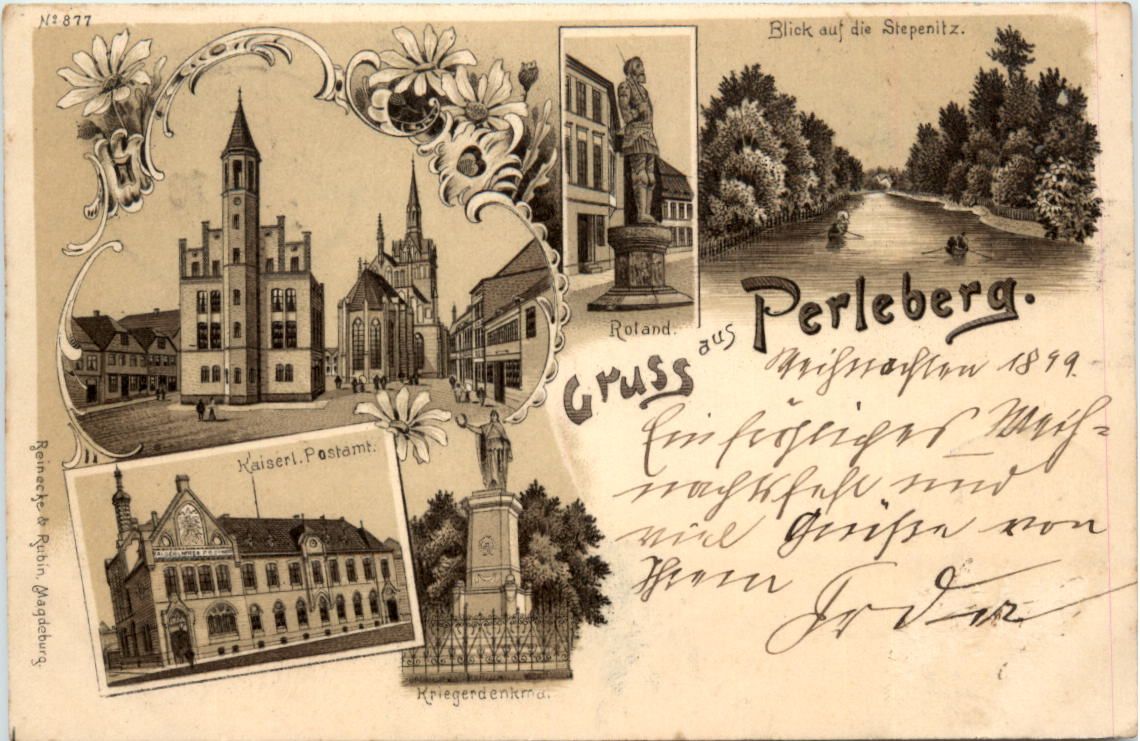 No 877
Blick auf die Stepenitz.
Roland.
Gruss aus Perleberg.
Weihnachten 1899.
Ein fröhliches Weih=
nachtsfest und
viel Grüße von
Ihrem
Kaiserl. Postamt.
Kriegerdenkmal.
Reinecke & Rubin, Magdeburg.